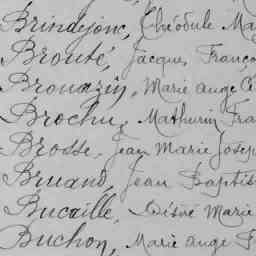 Brindejonc, Théodule Ma
Brouté, Jacques Franço
Brouazin, Marie ange
Brochu, Mathurin Fra
Brosse, Jean Marie Josep
Bruand, Jean Baptis
Bucaille, Désiré Marie
Buchon, Marie ange F